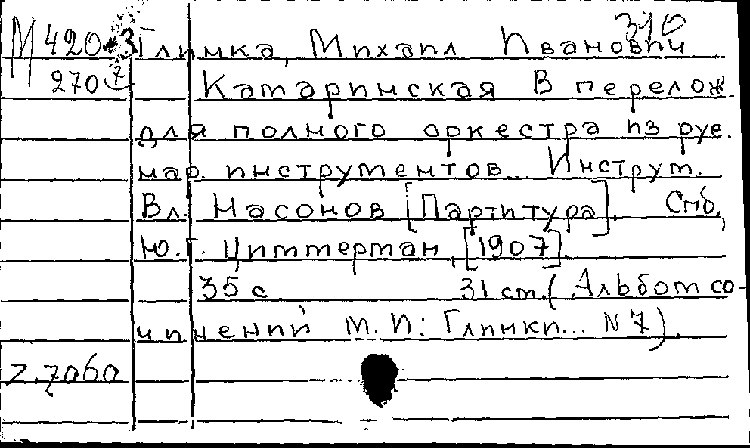 310
М 420-3 Глинка, Михаил Иванович
270 7 Камаринская В перелож.
для полного оркестра из рус.
нар. инструментов... Инструм.
Вл. Насонов [Партитура]. Спб,
Ю. Г. Циммерман, [1907]
35 с 31 см. (Альбом со-
чинений М. И. Глинки... N 7).